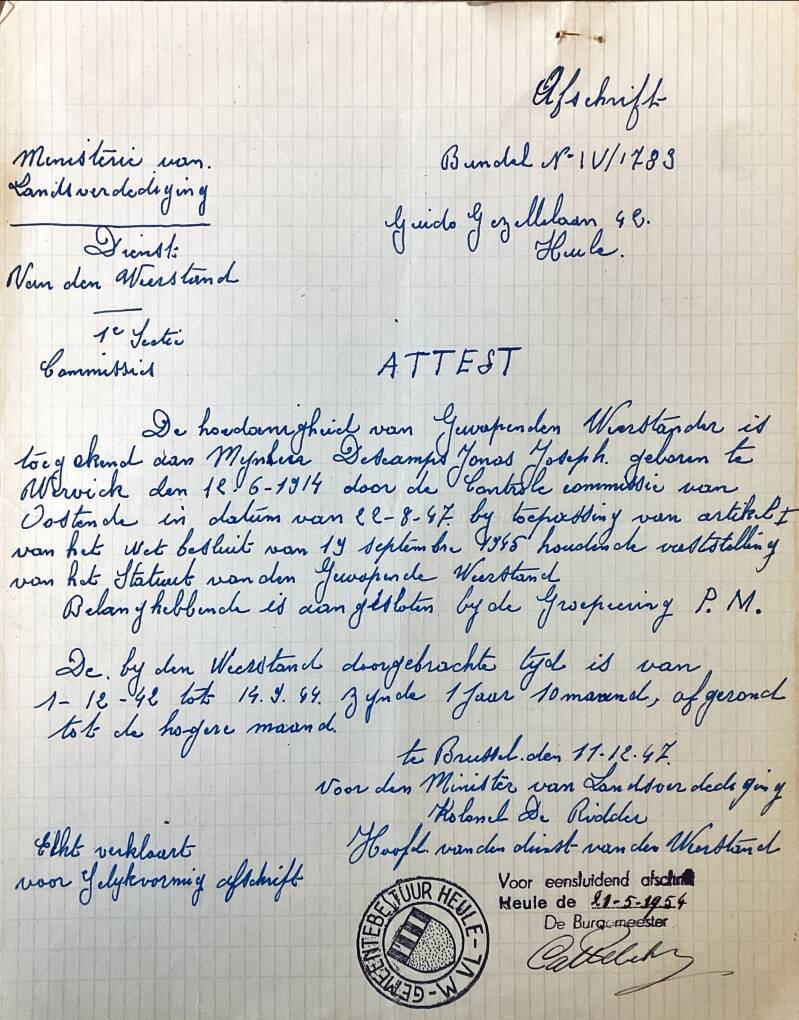 Afschrift
Ministerie van.
Landsverdediging
Bundel N- IV/1783
Guido Gezellelaan 42.
Heule.
Dienst
Van den Weerstand
1e Sectie
Commissies
ATTEST
De hoedanigheid van Gewapenden Weerstander is
toegekend aan Mynheer Descamps Jonas Joseph. geboren te
Werwick den 12-6-1914 door de Controle commissie van
Oostende in datum van 22-8-47. by toepassing van artikel I
van het wet besluit van 19 septembre 1945 houdende vaststelling
van het Statuut van den Gewapende Weerstand
Belanghebbende is aangesloten by de Groepeering P. M.
De. by den Weerstand doorgebrachte tyd is van
1-12-42 tot 14.9.44. zynde 1 Jaar 10 maand, afgerond
tot de hogere maand.
te Brussel. den 11-12-47.
voor den Minister van Landsverdediging
Kolonel De Ridder
Hoofd van den dienst van den Weerstand
Echt verklaart
voor Gelykvormig afschrift
Voor eensluidend afschrift
Heule de 21-5-1954
De Burgemeester
GEMEENTEBESTUUR HEULE - W VL -